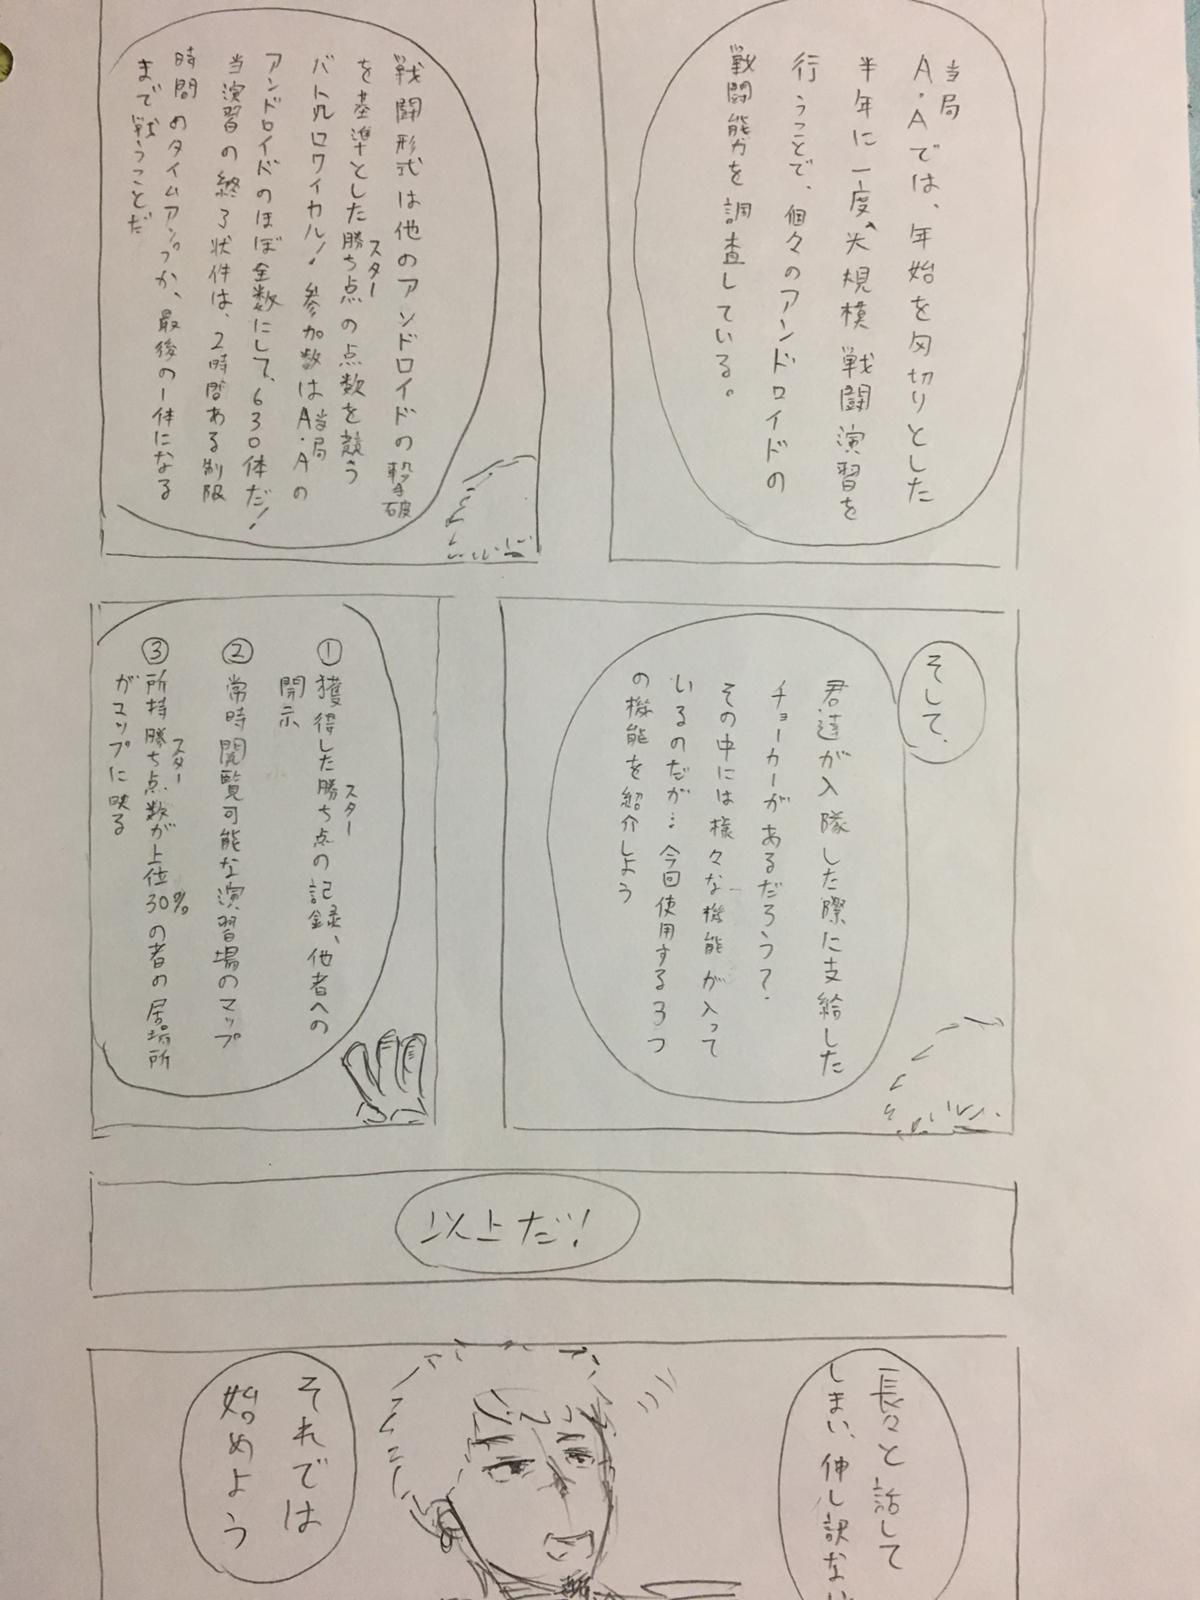 当局
A.Aでは、年始を区切りとした
半年に一度、大規模戦闘演習を
行うことで、個々のアンドロイドの
戦闘能力を調査している。
戦闘形式は他のアンドロイドの撃破
スター
を基準とした勝ち点の点数を競う
バトルロワイヤル!参加数はA.Aの
当局
アンドロイドのほぼ全数にして、630体だ!
当演習の終了状件は、2時間ある制限
時間のタイムアップか、最後の1体になる
まで戦うことだ
そして、
君達が入隊した際に支給した
チョーカーがあるだろう?
その中には様々な機能が入って
いるのだが…今回使用する3つ
の機能を紹介しよう
スター
①獲得した勝ち点の記録、他者への
開示
②常時閲覧可能な演習場のマップ
スター
③所持勝ち点数が上位30%の者の居場所
がマップに映る
以上だ!
長々と話して
しまい、申し訳ない
それでは
始めよう